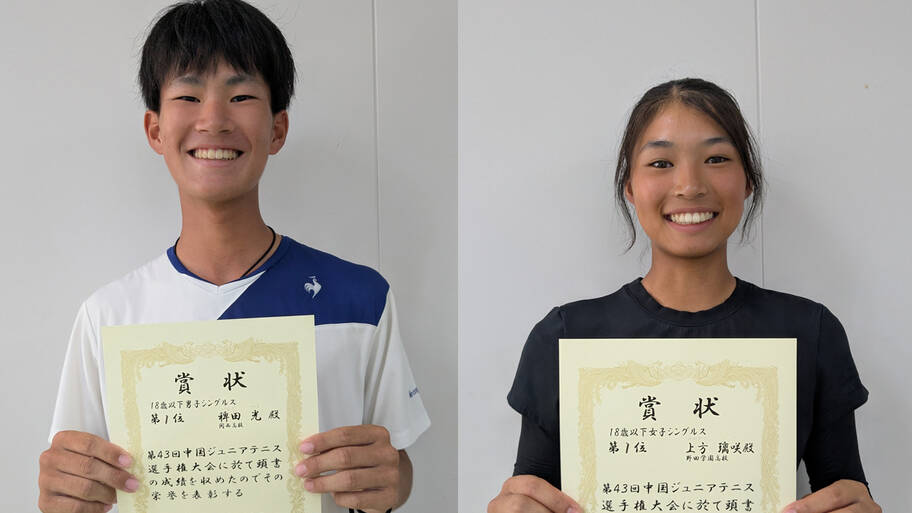 賞状
18歳以下男子シングルス
第1位 稗田 光 殿
関西高校
第43回中国ジュニアテニス
選手権大会に於て頭書
の成績を収めたのでその
栄誉を表彰する
賞状
18歳以下女子シングルス
第1位 上方 璃咲殿
野田学園高校
第43回中国ジュニアテニス
選手権大会に於て頭書